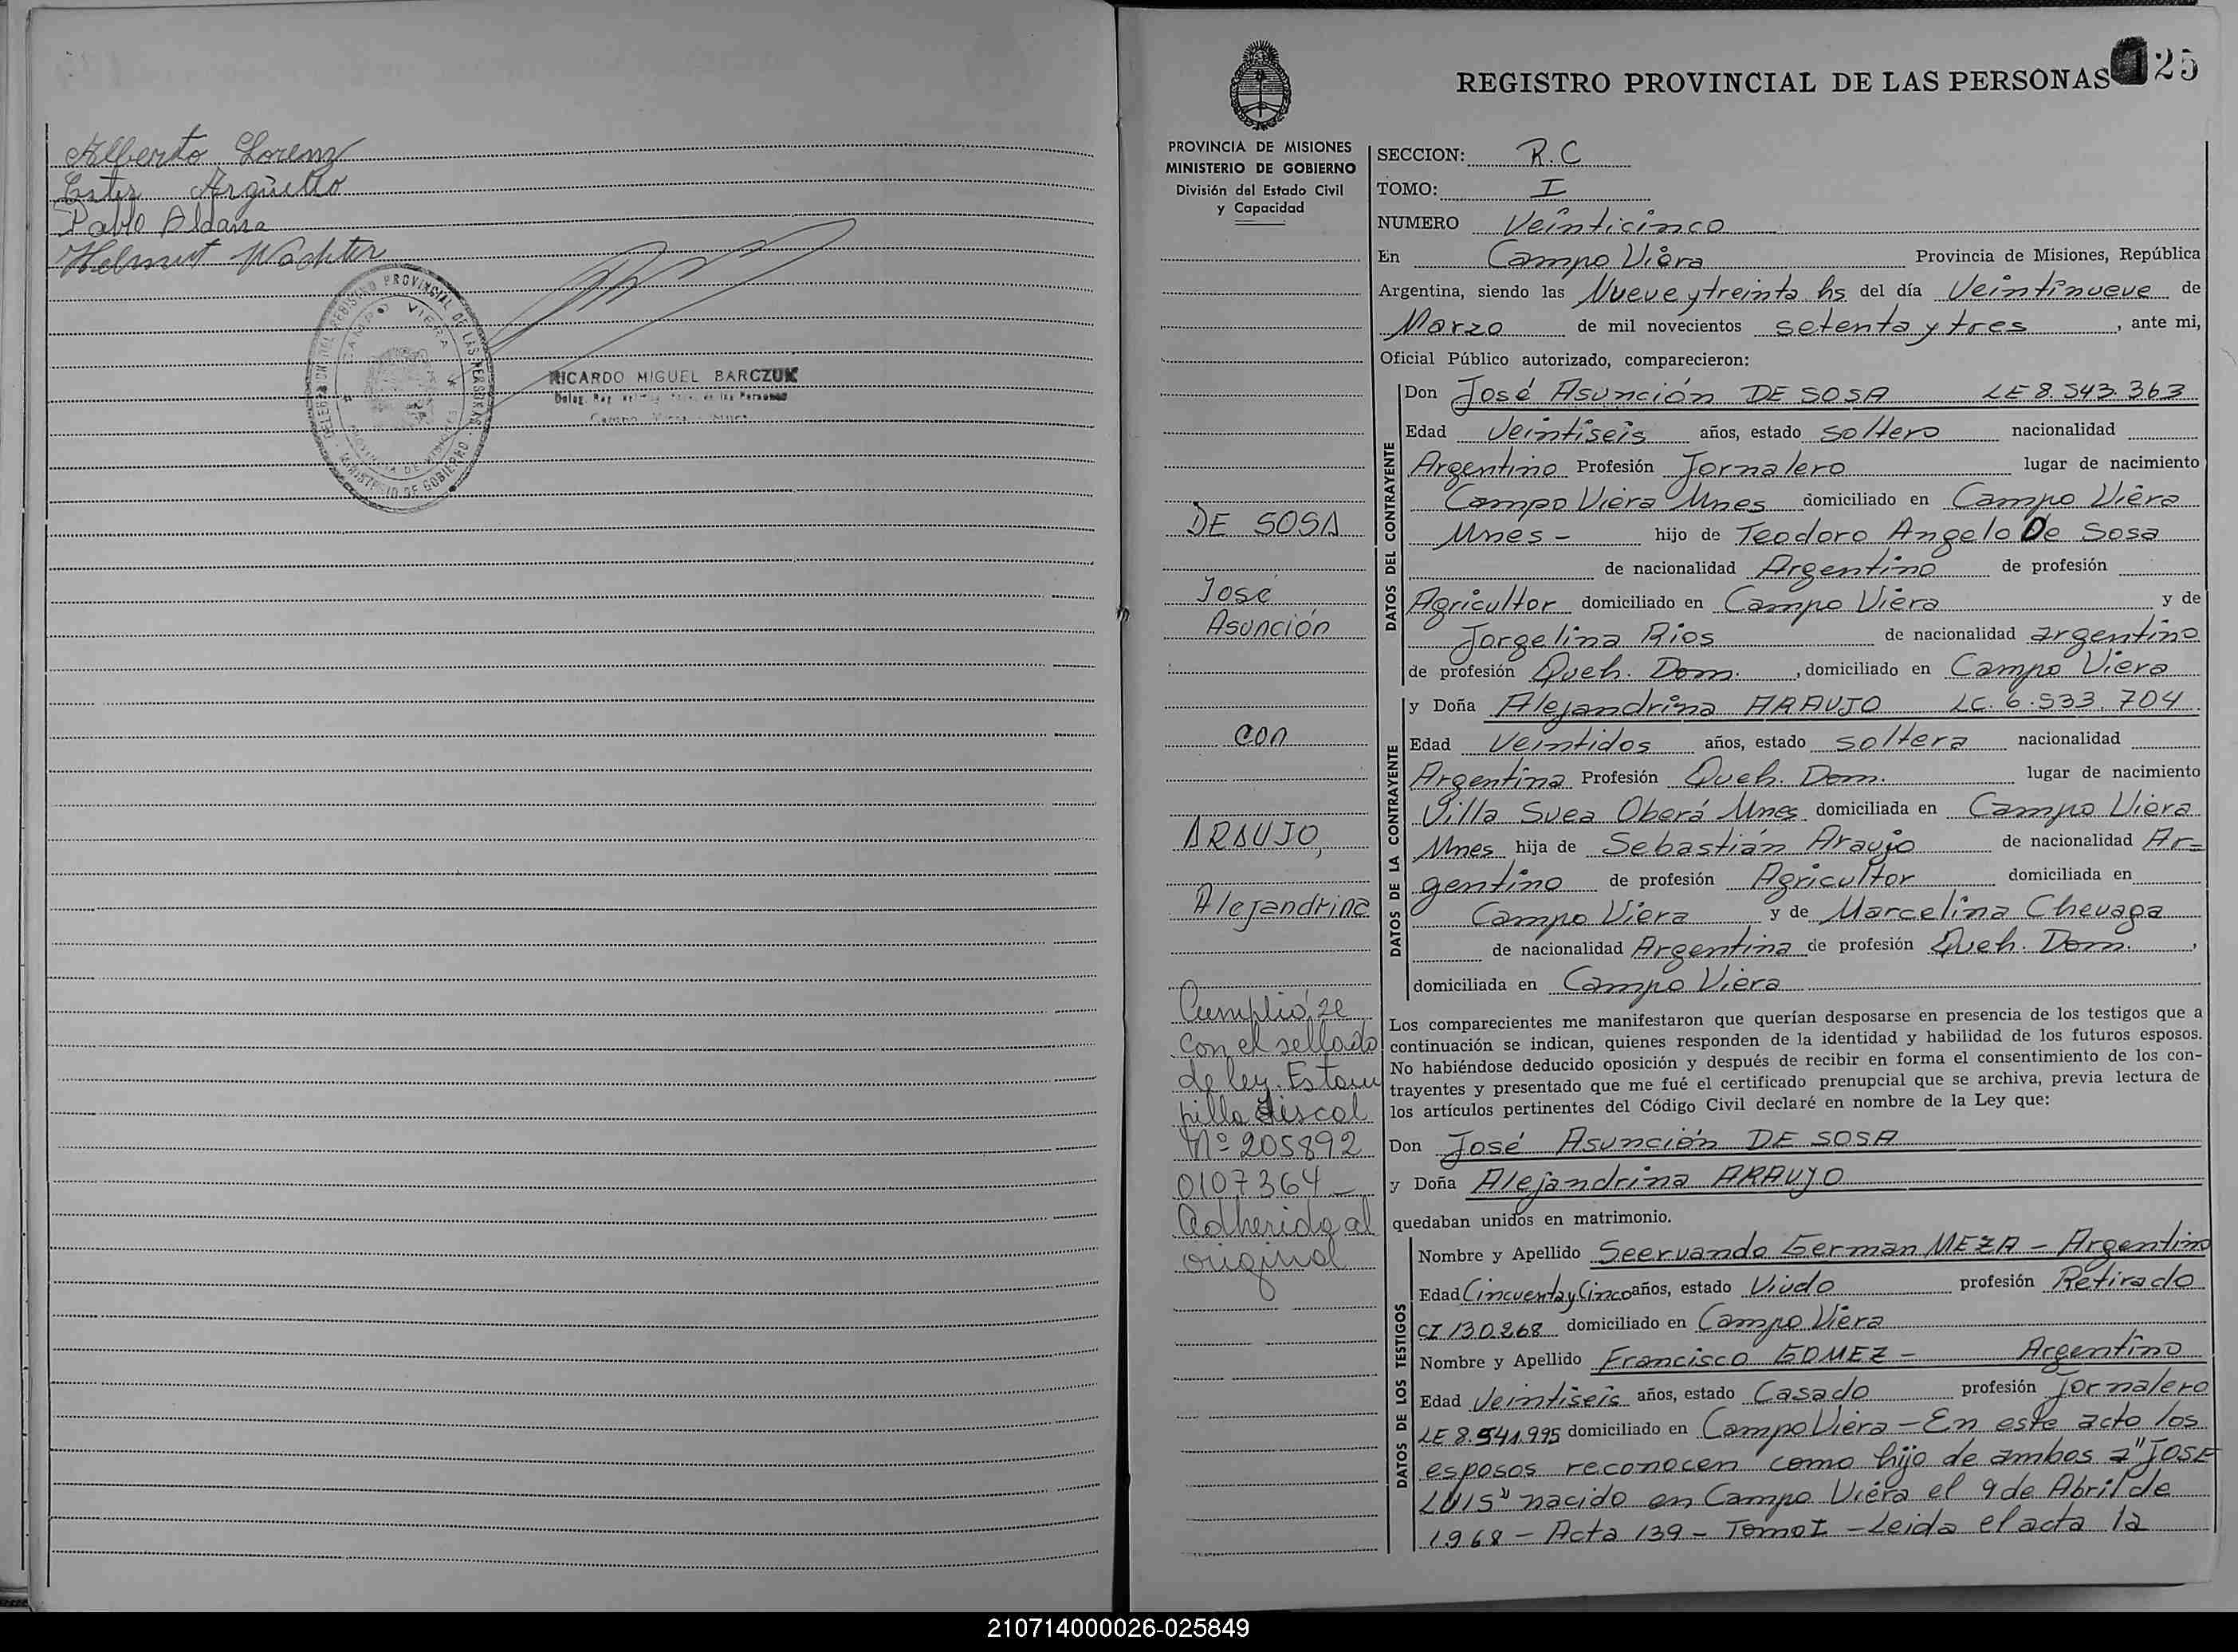 Alberto Lorenz
Ester Argüello
Pablo Aldana
Helmut Wächter
REGISTRO PROVINCIAL DE LAS PERSONAS
CAMPO VIERA
PROVINCIA DE MISIONES
MINISTERIO DE GOBIERNO
RICARDO MIGUEL BARCZUK
REGISTRO PROVINCIAL DE LAS PERSONAS 25
PROVINCIA DE MISIONES
MINISTERIO DE GOBIERNO
División del Estado Civil
y Capacidad
DE SOSA
José
Asunción
con
ARAUJO,
Alejandrina
Cumplió se
con el sellado
de ley. Estam
pilla fiscal
Nº 205892
0107364 -
Adherida al
original
SECCION: R.C
TOMO: I
NUMERO Veinticinco
En Campo Viera Provincia de Misiones, República
Argentina, siendo las Nueve y treinta hs del día Veintinueve de
Marzo de mil novecientos setenta y tres, ante mi,
Oficial Público autorizado, comparecieron:
DATOS DEL CONTRAYENTE
Don José Asunción DE SOSA LE 8.543.363
Edad Veintiseis años, estado soltero nacionalidad
Argentino Profesión Jornalero lugar de nacimiento
Campo Viera Mnes domiciliado en Campo Viera
Mnes - hijo de Teodoro Angelo De Sosa
de nacionalidad Argentino de profesión
Agricultor domiciliado en Campo Viera y de
Jorgelina Rios de nacionalidad argentino
de profesión Queh. Dom., domiciliado en Campo Viera
DATOS DE LA CONTRAYENTE
y Doña Alejandrina ARAUJO LC. 6.533.704
Edad Veintidos años, estado soltera nacionalidad
Argentina Profesión Queh. Dom. lugar de nacimiento
Villa Svea Oberá Mnes domiciliada en Campo Viera
Mnes hija de Sebastián Araujo de nacionalidad Ar=
gentino de profesión Agricultor domiciliada en
Campo Viera y de Marcelina Chevaga
de nacionalidad Argentina de profesión Queh. Dom.,
domiciliada en Campo Viera
Los comparecientes me manifestaron que querían desposarse en presencia de los testigos que a
continuación se indican, quienes responden de la identidad y habilidad de los futuros esposos.
No habiéndose deducido oposición y después de recibir en forma el consentimiento de los con-
trayentes y presentado que me fué el certificado prenupcial que se archiva, previa lectura de
los artículos pertinentes del Código Civil declaré en nombre de la Ley que:
Don José Asunción DE SOSA
y Doña Alejandrina ARAUJO
quedaban unidos en matrimonio.
DATOS DE LOS TESTIGOS
Nombre y Apellido Seervando German MEZA - Argentino
Edad Cincuenta y Cinco años, estado Viudo profesión Retirado
CI 130268 domiciliado en Campo Viera
Nombre y Apellido Francisco GOMEZ - Argentino
Edad Veintiseis años, estado Casado profesión Jornalero
LE 8.541.995 domiciliado en Campo Viera - En este acto los
esposos reconocen como hijo de ambos a "JOSE
LUIS" nacido en Campo Viera el 9 de Abril de
1968 - Acta 139 - Tomo I - Leida el acta la
210714000026-025849